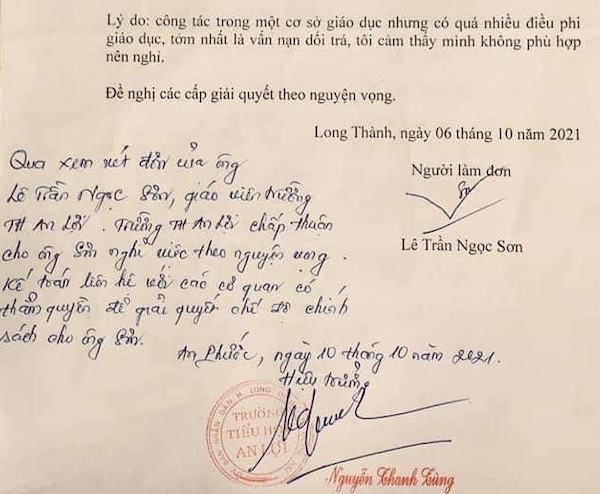 Lý do: công tác trong một cơ sở giáo dục nhưng có quá nhiều điều phi
giáo dục, tởm nhất là vấn nạn dối trá, tôi cảm thấy mình không phù hợp
nên nghỉ.
Đề nghị các cấp giải quyết theo nguyện vọng.
Long Thành, ngày 06 tháng 10 năm 2021
Người làm đơn
Lê Trần Ngọc Sơn
Qua xem xét đơn của ông
Lê Trần Ngọc Sơn, giáo viên trường
TH An Lợi. Trường TH An Lợi chấp thuận
cho ông Sơn nghỉ việc theo nguyện vọng.
Kế toán liên hệ với các cơ quan có
thẩm quyền để giải quyết chế độ chính
sách cho ông Sơn.
An Phước, ngày 10 tháng 10 năm 2021.
Hiệu trưởng
TRƯỜNG
TIỂU HỌC
AN LỢI
Nguyễn Thanh Tùng